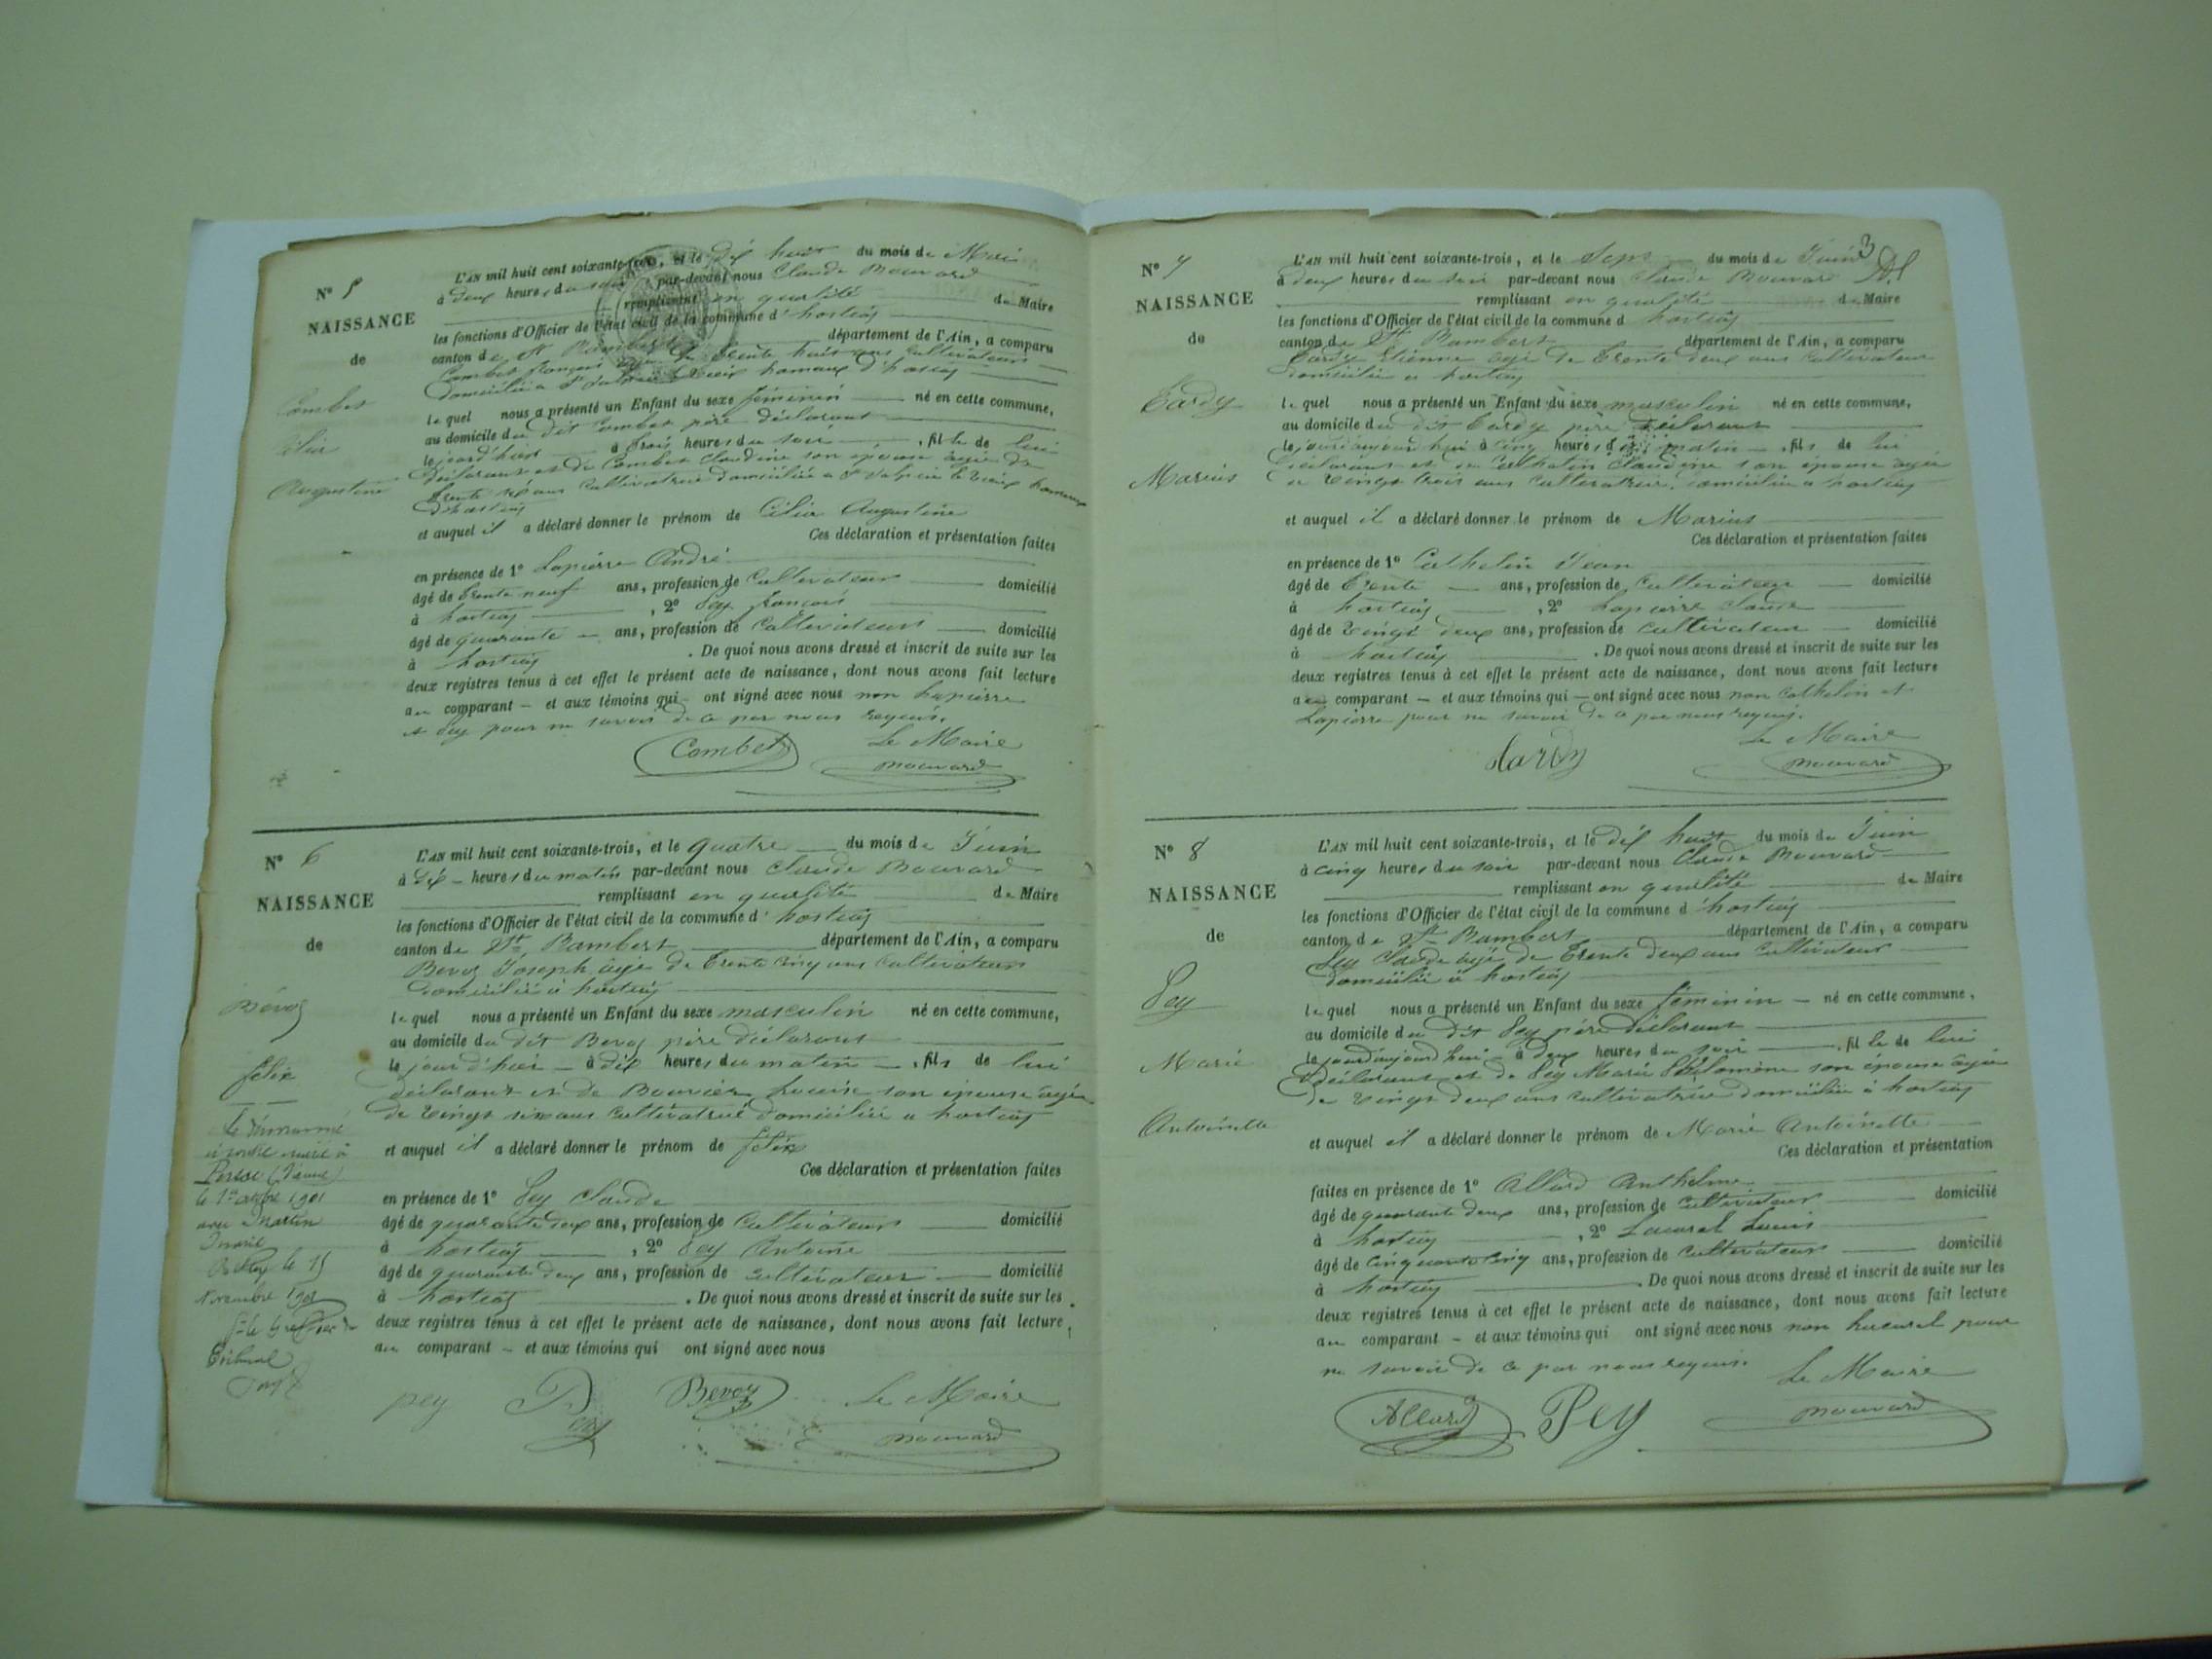 N° 5
NAISSANCE
de
Combet
Célia
Augustine
L'AN mil huit cent soixante-trois, et le dix huit du mois de Mai
à deux heures du soir par-devant nous Claude Mouvard
remplissant en qualité de Maire
les fonctions d'Officier de l'état civil de la commune d'hostiaz
canton de St Rambert département de l'Ain, a comparu
Combet françois âgé de trente huit ans Cultivateur
domicilié à
lequel nous a présenté un Enfant du sexe féminin né en cette commune,
au domicile du dit Combet père déclarant
le jour d'hier à trois heures du soir, fille de lui
déclarant et de Combet Claudine son épouse âgée de
trente ans Cultivatrice domiciliée a
d'hostiaz
et auquel il a déclaré donner le prénom de Célia Augustine
Ces déclaration et présentation faites
en présence de 1° Lapierre André
âgé de trente neuf ans, profession de Cultivateur domicilié
à hostiaz, 2° Pey françois
âgé de quarante ans, profession de Cultivateur domicilié
à hostiaz. De quoi nous avons dressé et inscrit de suite sur les
deux registres tenus à cet effet le présent acte de naissance, dont nous avons fait lecture
au comparant et aux témoins qui ont signé avec nous non Lapierre
et Pey pour ne savoir de ce par nous requis.
Combet
Le Maire
Mouvard
N° 6
NAISSANCE
de
Bevoz
félix
Le
Martin
le 15
Novembre 1901
Tribunal
L'AN mil huit cent soixante-trois, et le quatre du mois de Juin
à dix heures du matin par-devant nous Claude Mouvard
remplissant en qualité de Maire
les fonctions d'Officier de l'état civil de la commune d'hostiaz
canton de St Rambert département de l'Ain, a comparu
Bevoz Joseph âgé de trente cinq ans Cultivateur
domicilié à hostiaz
lequel nous a présenté un Enfant du sexe masculin né en cette commune,
au domicile du dit Bevoz père déclarant
le jour d'hier à dix heures du matin, fils de lui
déclarant et de son épouse âgée
de vingt six ans Cultivatrice domiciliée a hostiaz
et auquel il a déclaré donner le prénom de félix
Ces déclaration et présentation faites
en présence de 1° Pey Claude
âgé de quarante deux ans, profession de Cultivateur domicilié
à hostiaz, 2° Pey Antoine
âgé de quarante deux ans, profession de cultivateur domicilié
à hostiaz. De quoi nous avons dressé et inscrit de suite sur les
deux registres tenus à cet effet le présent acte de naissance, dont nous avons fait lecture,
au comparant et aux témoins qui ont signé avec nous
pey Pey Bevoz Le Maire
Mouvard
3
N° 7
NAISSANCE
de
Tardy
Marius
L'AN mil huit cent soixante-trois, et le Sept du mois de Juin
à deux heures du soir par-devant nous Claude Mouvard
remplissant en qualité de Maire
les fonctions d'Officier de l'état civil de la commune d hostiaz
canton de St Rambert département de l'Ain, a comparu
Tardy Etienne âgé de trente deux ans Cultivateur
domicilié a hostiaz
lequel nous a présenté un Enfant du sexe masculin né en cette commune,
au domicile du dit Tardy père déclarant
le jourd'aujourd'hui à cinq heures du matin, fils de lui
déclarant et de Cathelin Claudine son épouse âgée
de vingt trois ans Cultivatrice, domiciliée a hostiaz
et auquel il a déclaré donner le prénom de Marius
Ces déclaration et présentation faites
en présence de 1° Cathelin Jean
âgé de trente ans, profession de Cultivateur domicilié
à hostiaz, 2° Lapierre Claude
âgé de vingt deux ans, profession de cultivateur domicilié
à hostiaz. De quoi nous avons dressé et inscrit de suite sur les
deux registres tenus à cet effet le présent acte de naissance, dont nous avons fait lecture
au comparant et aux témoins qui ont signé avec nous non Cathelin et
Lapierre pour ne savoir de ce par nous requis.
tardy
Le Maire
Mouvard
N° 8
NAISSANCE
de
Pey
Marie
Antoinette
L'AN mil huit cent soixante-trois, et le dix huit du mois de Juin
à cinq heures du soir par-devant nous Claude Mouvard
remplissant en qualité de Maire
les fonctions d'Officier de l'état civil de la commune d'hostiaz
canton de St Rambert département de l'Ain, a comparu
Pey Claude âgé de trente deux ans Cultivateur
domicilié à hostiaz
lequel nous a présenté un Enfant du sexe féminin né en cette commune,
au domicile du dit Pey père déclarant
le jourd'aujourd'hui à deux heures du soir, fille de lui
déclarant et de Pey Marie Philomène son épouse âgée
de vingt deux ans cultivatrice domiciliée à hostiaz
et auquel il a déclaré donner le prénom de Marie Antoinette
Ces déclaration et présentation
faites en présence de 1° Allard Anthelme
âgé de quarante deux ans, profession de cultivateur domicilié
à hostiaz, 2° Lucurel
âgé de cinquante cinq ans, profession de cultivateur domicilié
à hostiaz. De quoi nous avons dressé et inscrit de suite sur les
deux registres tenus à cet effet le présent acte de naissance, dont nous avons fait lecture
au comparant et aux témoins qui ont signé avec nous non Lucurel pour
ne savoir de ce par nous requis.
Le Maire
Allard Pey Mouvard